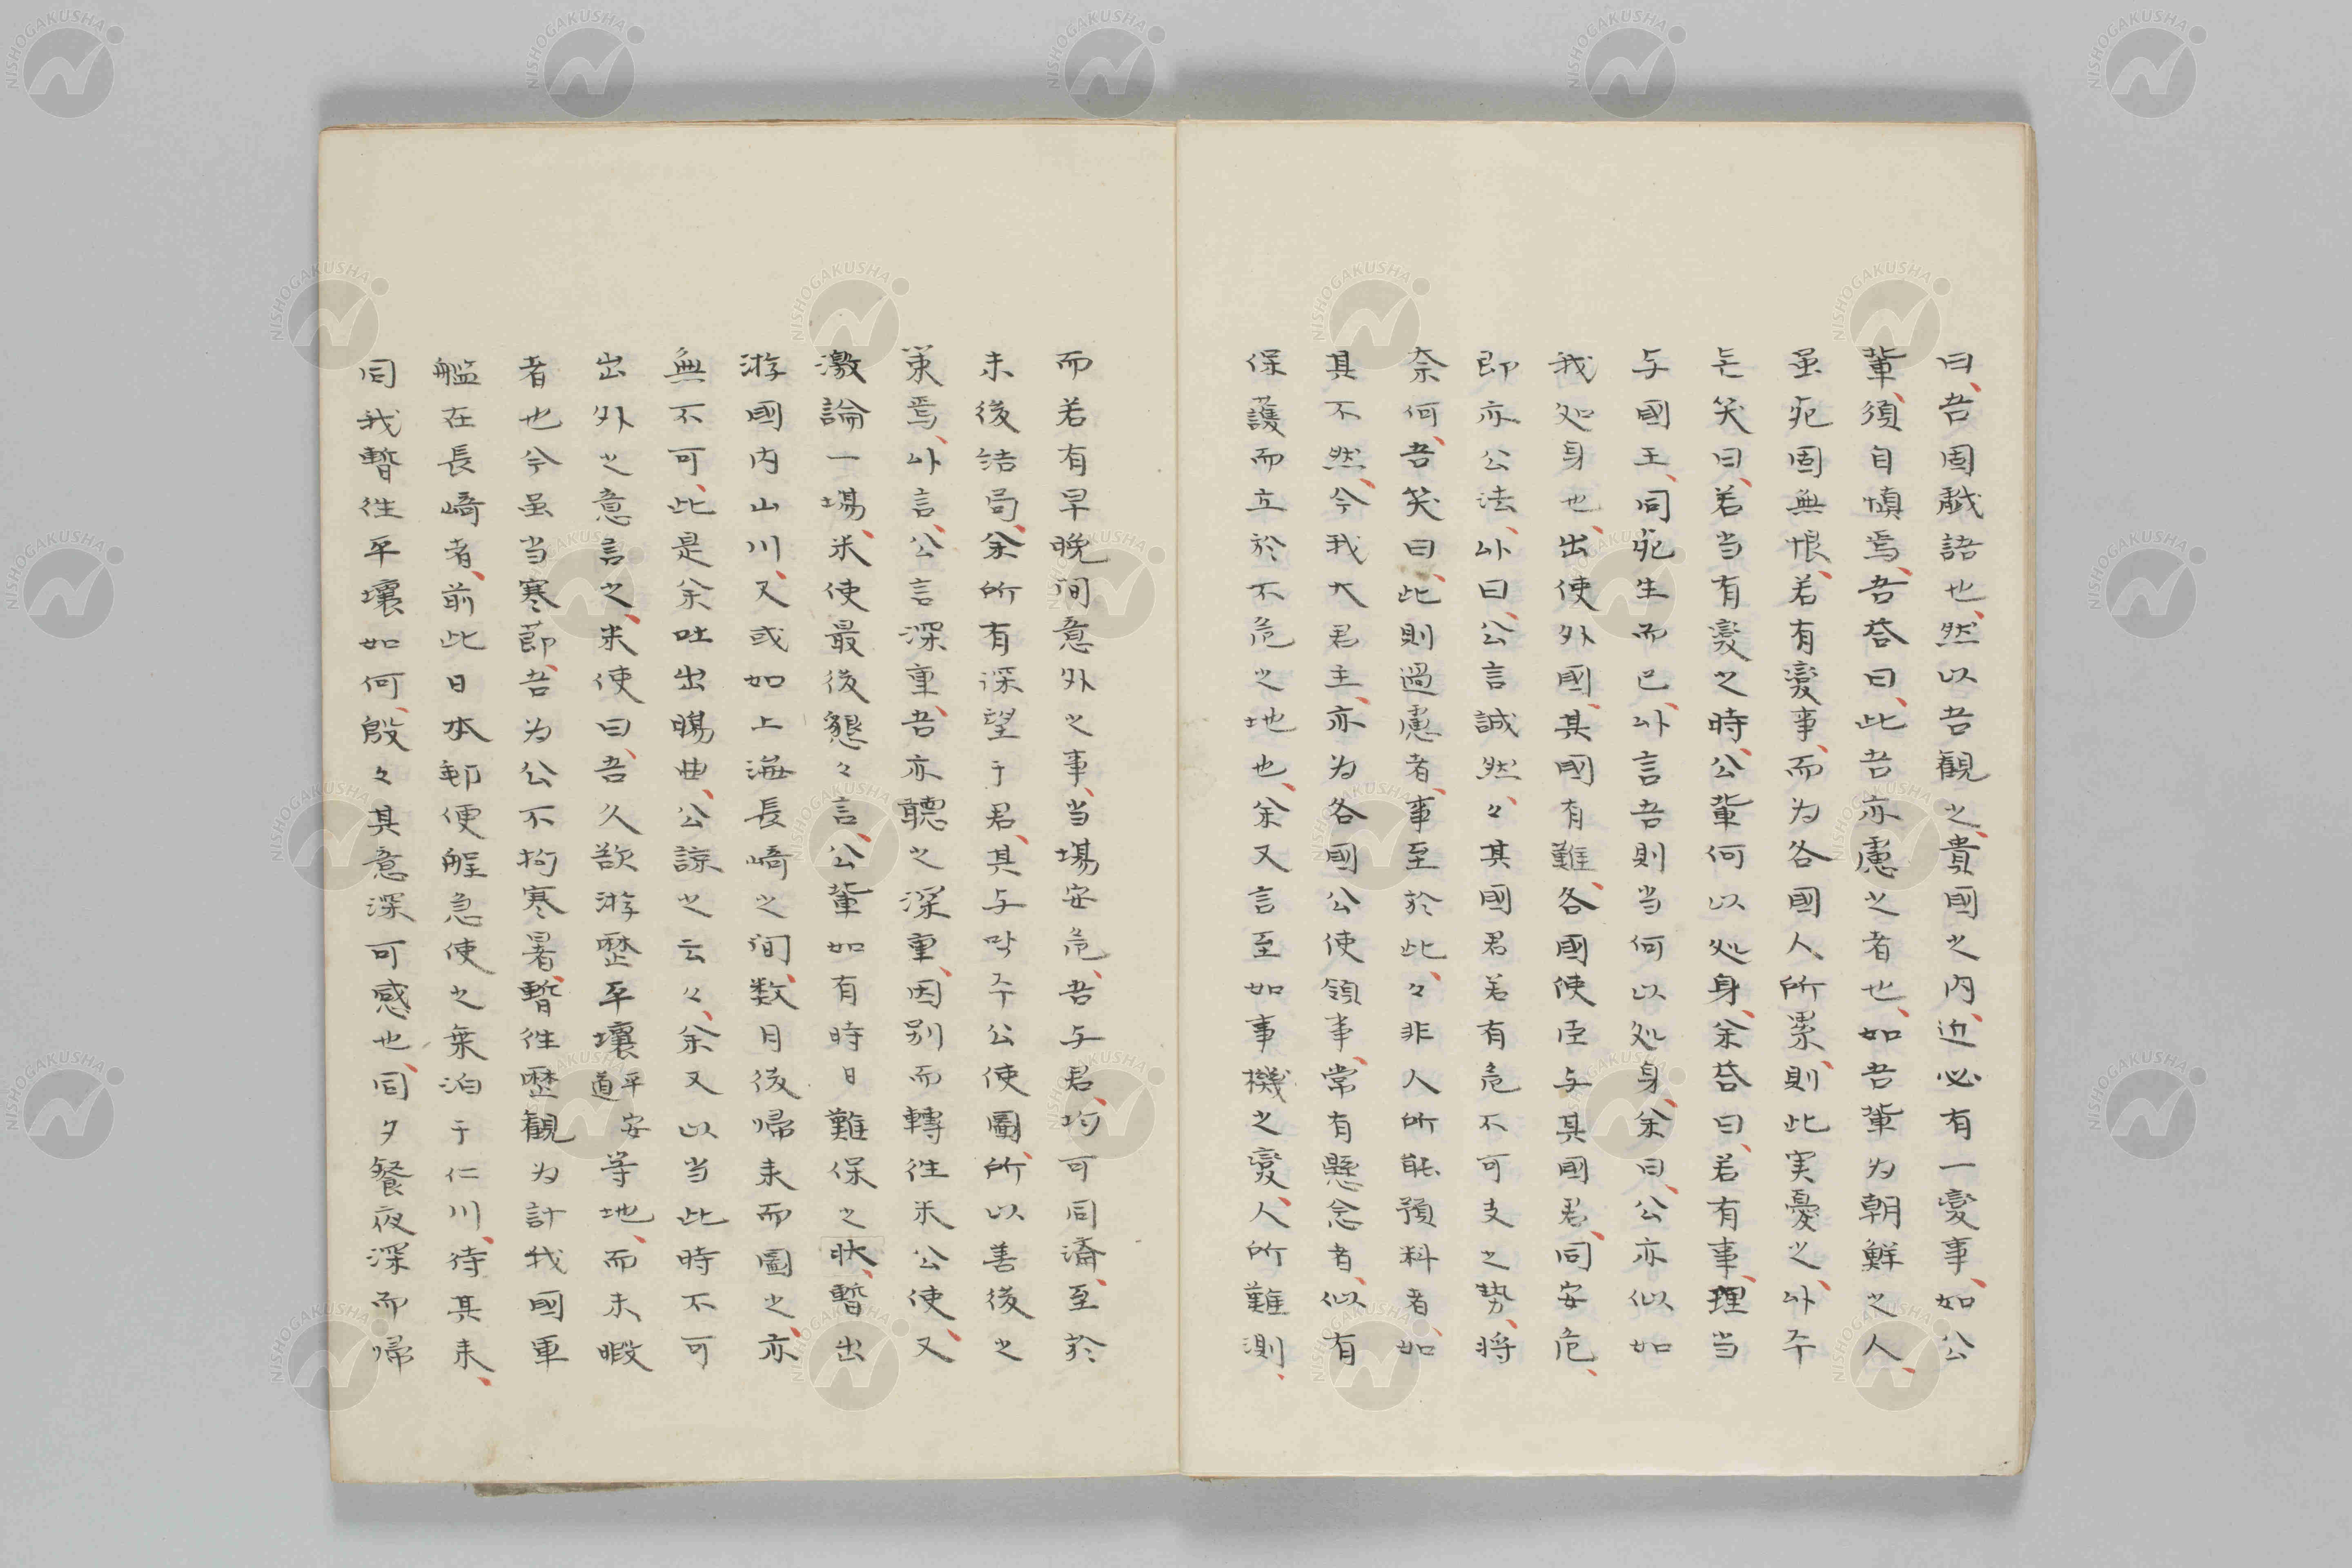 曰吾固戱語也然以吾観之貴國之内近必有一変事如公
輩須自愼焉吾荅曰此吾亦慮之者也如吾輩为朝鮮之人
虽死固無恨若有変事而为各國人所累則此実憂之㕤
笑曰若当有変之時公輩何以処身余荅曰若有事理当
与國王同死生而已㕤言吾則当何以処身余曰公亦似如
我処身也出使外國其國有難各國使臣与其國君同安危
即亦公法㕤曰公言誠然々其國君若有危不可支之势将
奈何吾笑曰此則過慮者事至於此々非人所能預料者如
其不然今我大君主亦为各國公使領事常有懸念者似有
保護而立於不危之地也余又言至如事機之変人所難測
而若有早晩间意外之事当場安危吾与君均可同濟至於
末後结局余所有深望于君其与公使圖所以善後之
策焉㕤言公言深重吾亦聽之深重因别而轉徃米公使又
激論一場米使最後懇々言公輩如有時日難保之狀暫出
游國内山川又或如上海長崎之间数月後帰来而圖之亦
無不可此是余吐出暘曲公諒之云々余又以当此時不可
出外之意言之米使曰吾久欲游歴平壤平安道等地而未暇
者也今虽当寒節吾为公不拘寒暑暫徃歴観为計我國軍
艦在長崎者前此日本郵便艇急使之棄泊于仁川待其来
同我暫徃平壤如何慇々其意深可感也同夕餐夜深而帰